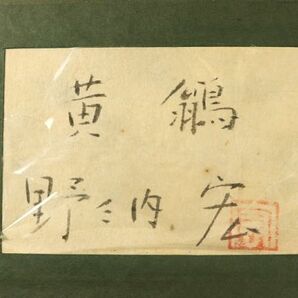 黄 鶲
野々内 宏